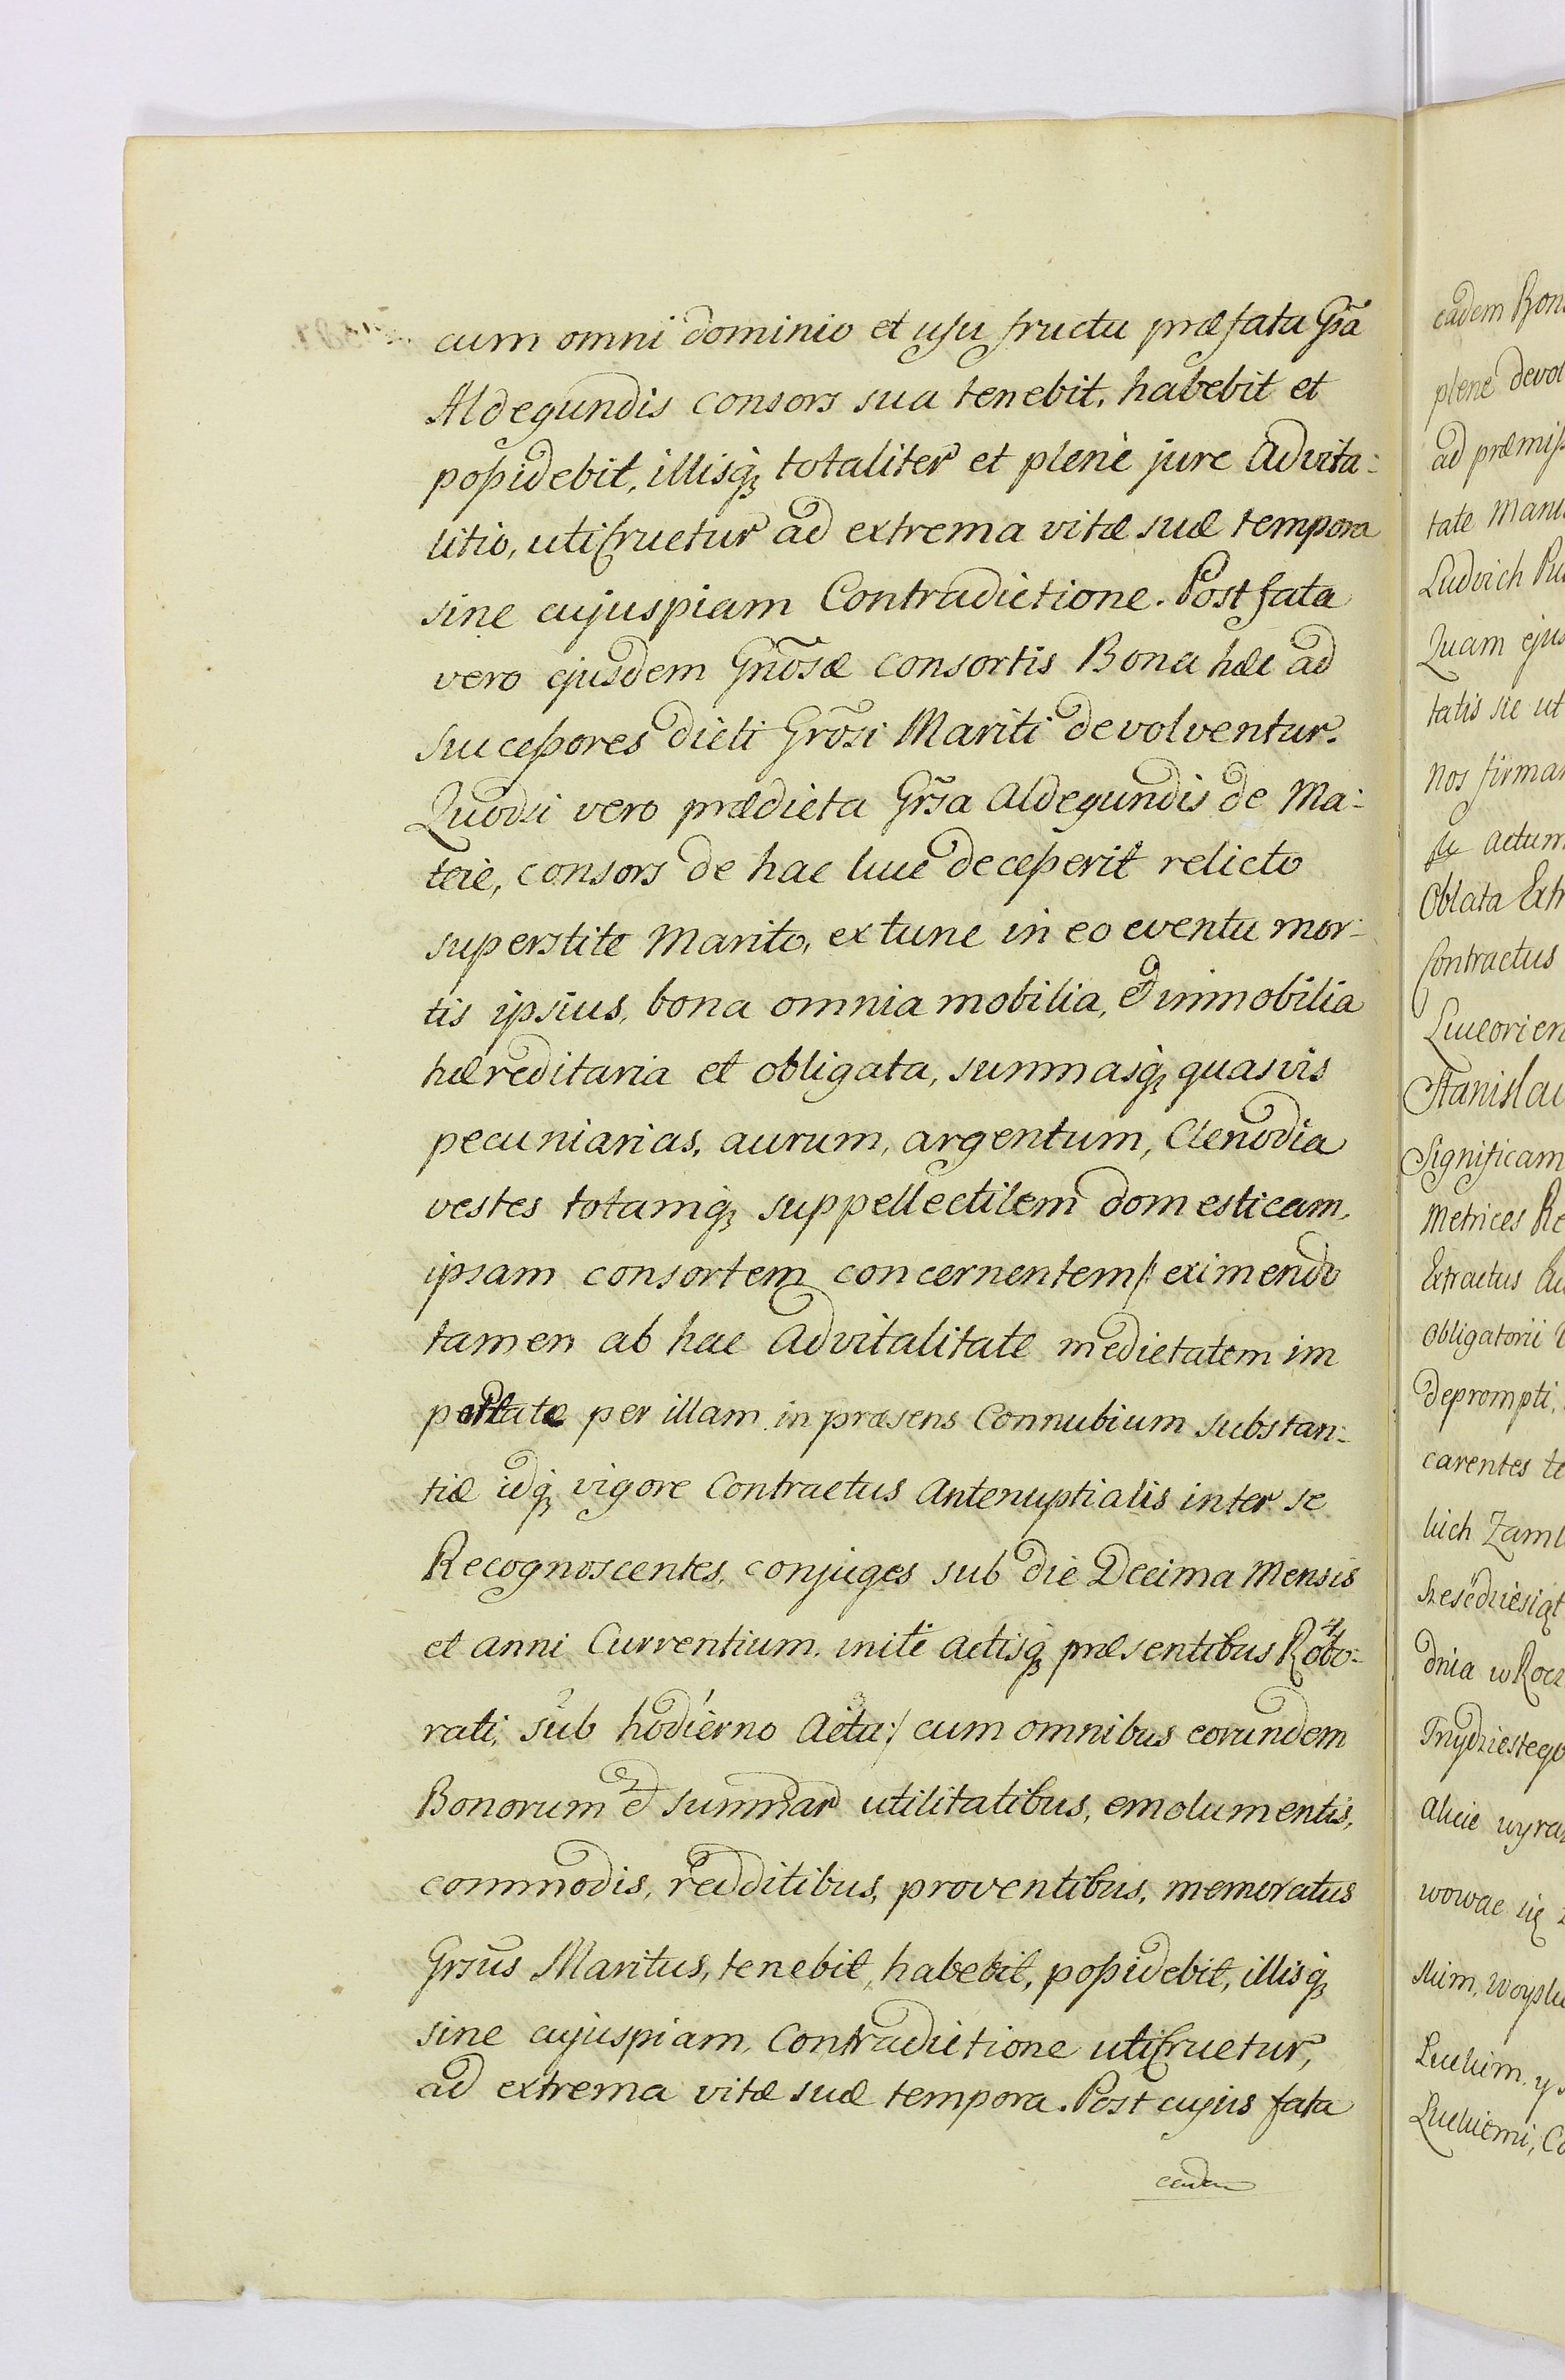 cum omni dominio et usu fructu præfata Gsa
Aldegundis consors sua tenebit, habebit et
possidebit, illisq; totaliter et plene jure Advita:
litio, utifruetur ad extrema vitæ suæ tempora
sine cujuspiam Contradictione. Post fata
vero ejusdem Gnosæ consortis Bona hæc ad
successores dicti Grosi Mariti devolventur.
Quodsi vero prædicta Grsa Aldegundis de Ma:
teie, consors de hac luce decesserit relicto
superstite Marito, extunc in eo eventu mor:
tis ipsius, bona omnia mobilia, et immobilia
hæreditaria et obligata, summasq; quasvis
pecuniarias, aurum, argentum, Clenodia
vestes totamq; suppellectilem domesticam,
ipsam consortem concernentem /: eximendo
tamen ab hac Advitalitate medietatem im
portatæ per illam in præsens Connubium substan:
tiæ idq; vigore Contractus Antenuptialis inter se
Recognoscentes, conjuges sub die Decima Mensis
et anni Currentium, initi actisq; præsentibus Robo:
rati, sub hodierno Acta :/ cum omnibus eorundem
Bonorum et summar utilitatibus, emolumentis,
commodis, redditibus, proventibus, memoratus
Grsus Maritus, tenebit, habebit, possidebit, illisq;
sine cujuspiam, Contradictione utifruetur,
ad extrema vitæ suæ tempora. Post cujus fata
eadem
eadem Bon
plene devol
ad præmiss
tate Manu
Ludvich
Quam ejus
tatis sic ut
nos firma
actum
Oblata Extr
Contractus
Luceorien
Stanislau
Significam
Metrices Re
Extractus
Obligatorii
deprompti,
carentes te
kich Zaml
dnia w Rocz
Trzydziestego
alicie wyra
wowae się
skim, Woysk
Luckim, y
Luckiemi, Co